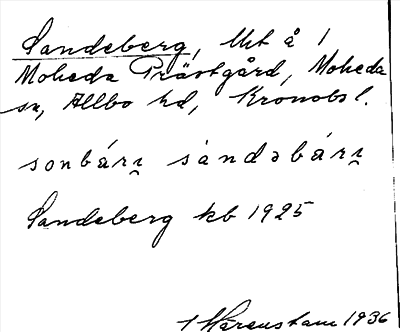 Sandeberg, lht å 1
Moheda Prästgård, Moheda
sn, Allbo hd, Kronobs l.
sonbári̯ sàndəbári̯
Sandeberg kb 1925
Härenstam 1936